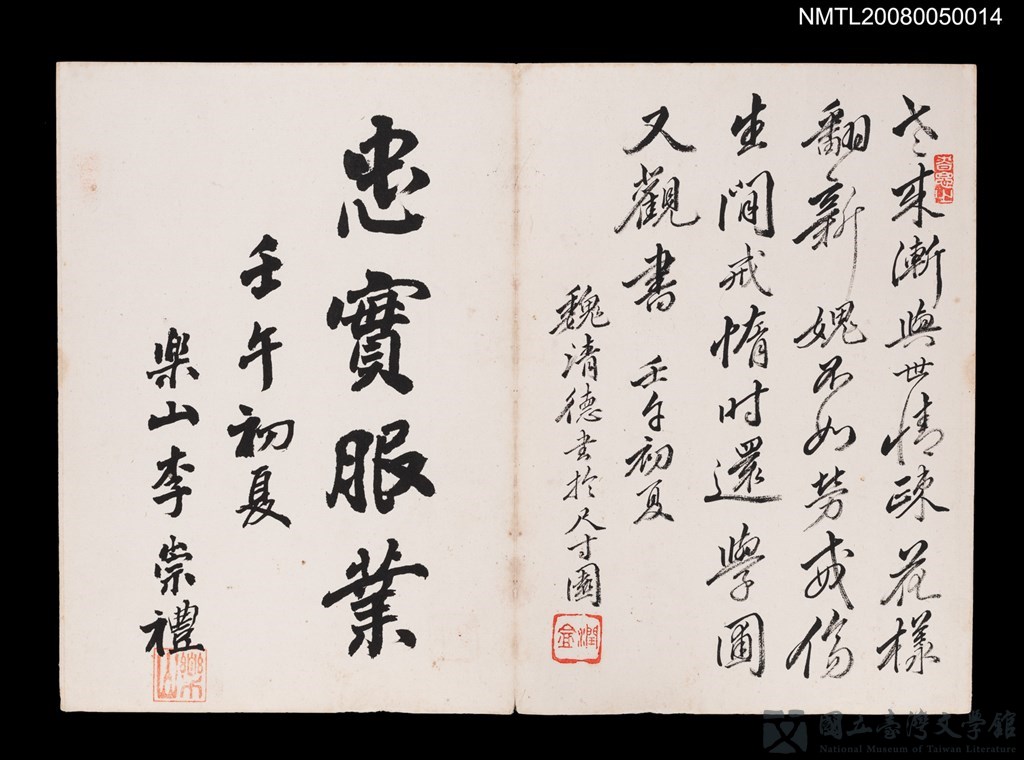 NMTL20080050014
老來漸與世情疎花樣
翻新媿不如勞或傷
生閒戒惰时還學圃
又觀書 壬午初夏
魏清德书於尺寸園
忠實服業
壬午初夏
楽山李崇禮
樂山
國立臺灣文學館
National Museum of Taiwan Literature